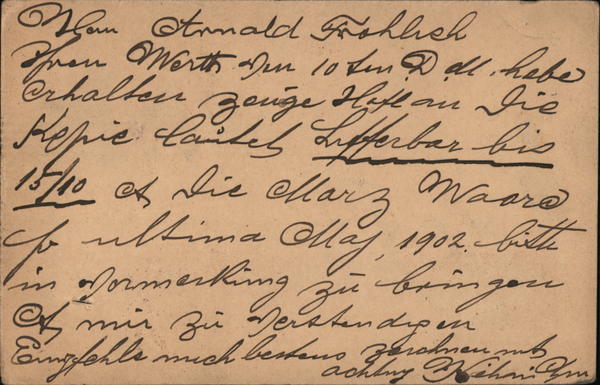 Herrn Arnold Fröhlich
Ihren Werth. vom 10 ten D. M. habe
erhalten zeige an Die
Kopie lautet Lifferbar bis
15/10 & Die Marz Waare
p ultima May 1902 bitte
in vormerkung zu bringen
& mir zu verstendigen
Empfehle mich bestens zeichne mit
achtung